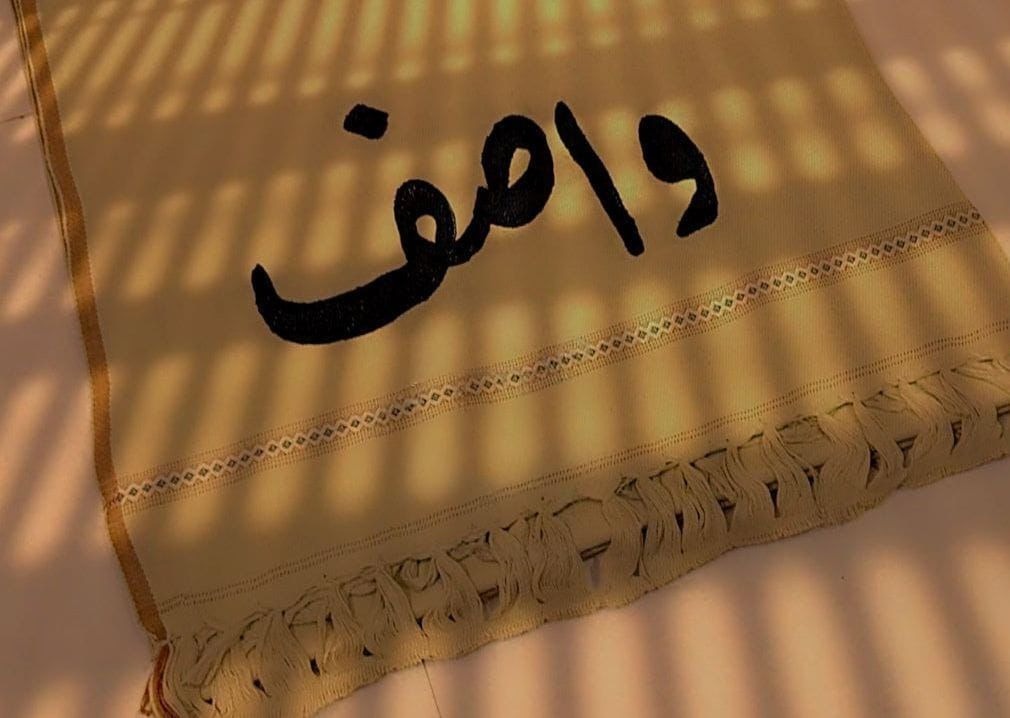 واصف